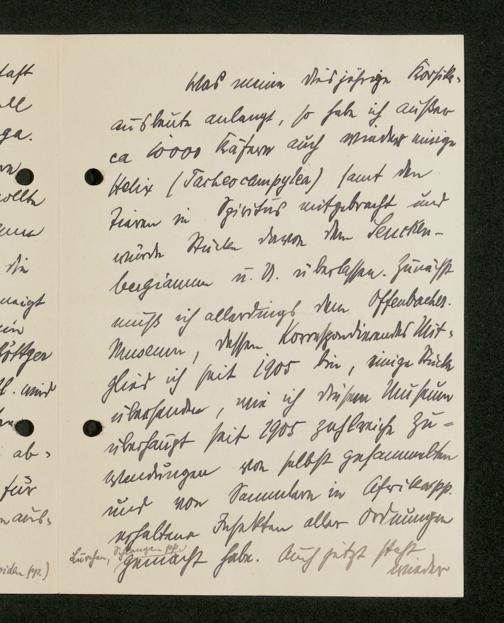 taft
ell
ga.
sollte
die
neigt
ein
Böttger
ff. wird
ab-
für
aus-
iden pp.)
Was meine diesjährige Korsika-
ausbeute anlangt, so habe ich außer
ca 10000 Käfern auch wieder einige
Helix (Tacheocampylea) samt den
Tieren in Spiritus mitgebracht und
würde Stücke davon dem Sencken-
bergianum u. U. überlassen. Zunächst
muß ich allerdings dem Offenbacher
Museum, dessen Korrespondierendes Mit-
glied ich seit 1905 bin, einige Stücke
übersenden, wie ich diesem Museum
überhaupt seit 1905 zahlreiche Zu-
wendungen von selbst gesammelten
und von Sammlern in Afrika pp.
erhaltene Insekten aller Ordnungen
Lurchen, Schlangen pp.
gemacht habe. Auch jetzt steht
wieder